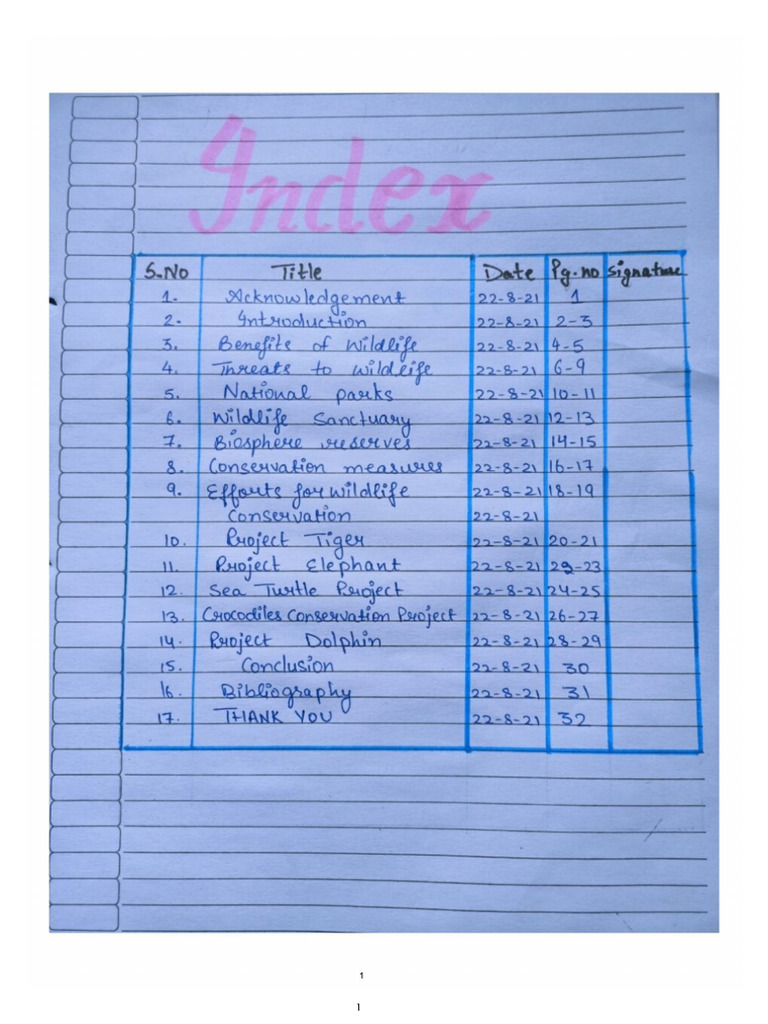 Index
S.No Title Date Pg.no Signature
1. Acknowledgement 22-8-21 1
2. Introduction 22-8-21 2-3
3. Benefits of Wildlife 22-8-21 4-5
4. Threats to Wildlife 22-8-21 6-9
5. National parks 22-8-21 10-11
6. Wildlife Sanctuary 22-8-21 12-13
7. Biosphere reserves 22-8-21 14-15
8. Conservation measures 22-8-21 16-17
9. Efforts for Wildlife 22-8-21 18-19
Conservation 22-8-21
10. Project Tiger 22-8-21 20-21
11. Project Elephant 22-8-21 22-23
12. Sea Turtle Project 22-8-21 24-25
13. Crocodiles Conservation Project 22-8-21 26-27
14. Project Dolphin 22-8-21 28-29
15. Conclusion 22-8-21 30
16. Bibliography 22-8-21 31
17. THANK YOU 22-8-21 32
1
1